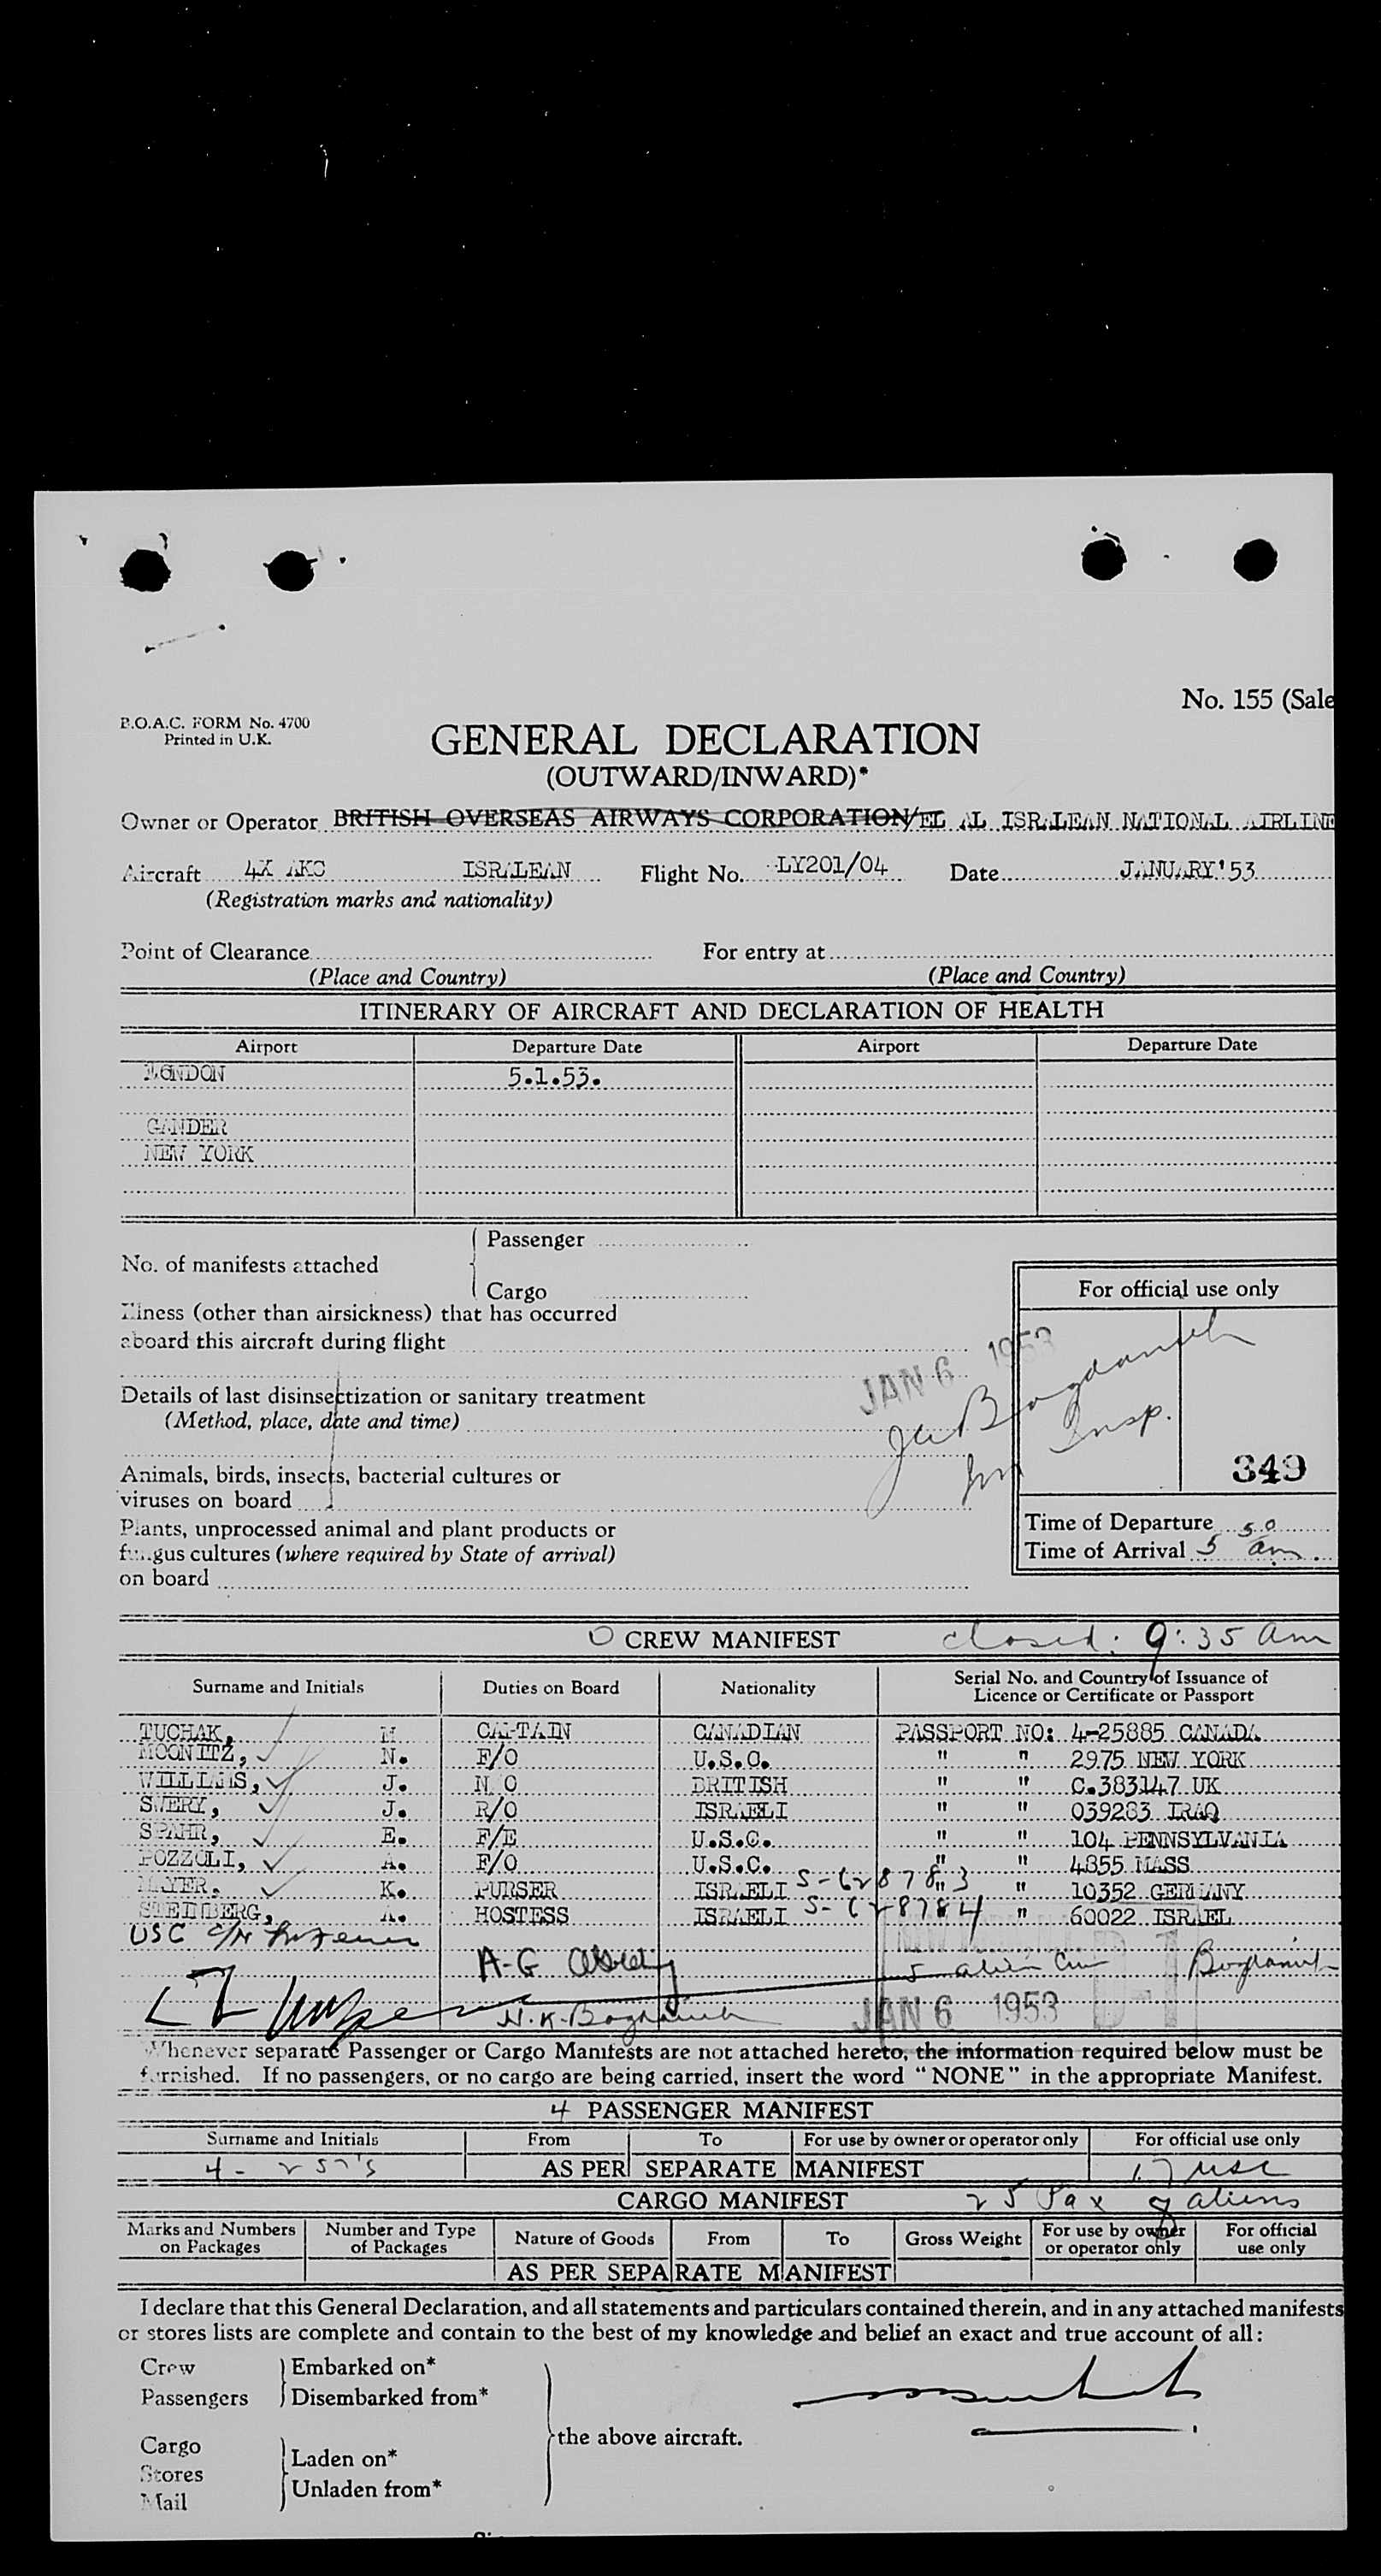 No. 155 (Sale
B.O.A.C. FORM No. 4700
Printed in U.K.
GENERAL DECLARATION
(OUTWARD/INWARD)*
Owner or Operator BRITISH OVERSEAS AIRWAYS CORPORATION/EL AL ISRALEAN NATIONAL AIRLINE
Aircraft 4X AKC ISRALEAN Flight No. LY201/04 Date JANUARY'53
(Registration marks and nationality)
Point of Clearance For entry at
(Place and Country) (Place and Country)
ITINERARY OF AIRCRAFT AND DECLARATION OF HEALTH
Airport Departure Date Airport Departure Date
LONDON 5.1.53.
GANDER
NEW YORK
Passenger
No. of manifests attached
Cargo
For official use only
Illness (other than airsickness) that has occurred
aboard this aircraft during flight
JAN 6 1953
Details of last disinsectization or sanitary treatment
(Method, place, date and time)
Insp.
Animals, birds, insects, bacterial cultures or
viruses on board
349
Plants, unprocessed animal and plant products or
fungus cultures (where required by State of arrival)
on board
Time of Departure
Time of Arrival 5 am
CREW MANIFEST closed: 9:35 am
Surname and Initials Duties on Board Nationality Serial No. and Country of Issuance of
Licence or Certificate or Passport
TUCHAK, M CAPTAIN CANADIAN PASSPORT NO: 4-25885 CANADA
MOONITZ, N. F/O U.S.C. " " 2975 NEW YORK
WILLIAMS, J. N O BRITISH " " C.383147 UK
SWERY, J. R/O ISRAELI " " 039283 IRAQ
SPAHR, E. F/E U.S.C. " " 104 PENNSYLVANIA
POZZOLI, A. F/O U.S.C. " " 4855 MASS
MAYER, K. PURSER ISRAELI S-628783 " " 10352 GERMANY
STEINBERG, A. HOSTESS ISRAELI S-628784 " 60022 ISRAEL
USC
A-G 5 alien
JAN 6 1953
Whenever separate Passenger or Cargo Manifests are not attached hereto, the information required below must be
furnished. If no passengers, or no cargo are being carried, insert the word "NONE" in the appropriate Manifest.
4 PASSENGER MANIFEST
Surname and Initials From To For use by owner or operator only For official use only
4 - 257's AS PER SEPARATE MANIFEST 17 usc
CARGO MANIFEST 25 Pax 8 aliens
Marks and Numbers on Packages Number and Type of Packages Nature of Goods From To Gross Weight For use by owner or operator only For official use only
AS PER SEPARATE MANIFEST
I declare that this General Declaration, and all statements and particulars contained therein, and in any attached manifests
or stores lists are complete and contain to the best of my knowledge and belief an exact and true account of all:
Crew Embarked on*
Passengers Disembarked from*
the above aircraft.
Cargo
Laden on*
Stores
Unladen from*
Mail